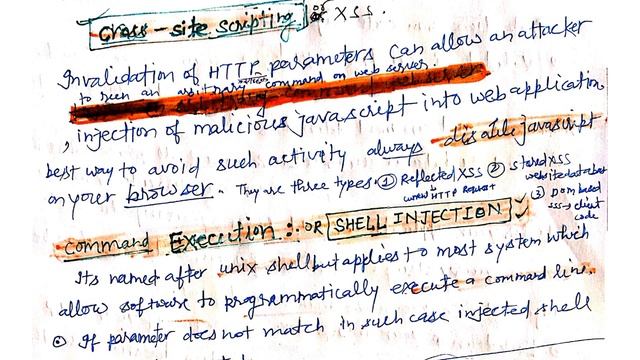 Cross-site scripting or XSS.
Invalidation of HTTP parameters can allow an attacker
to reen an arbitrary command on web server.
, injection of malicious javascript into web application,
best way to avoid such activity always disable javascript
on your browser. They are three types ① Reflected XSS ② stored XSS
HTTP Request website database
③ DOM based
XSS → client
code
command Execution :. OR SHELL INJECTION
Its named after unix shell but applies to most system which
allow software to programmatically execute a command line.
If parameter does not match in such case injected shell